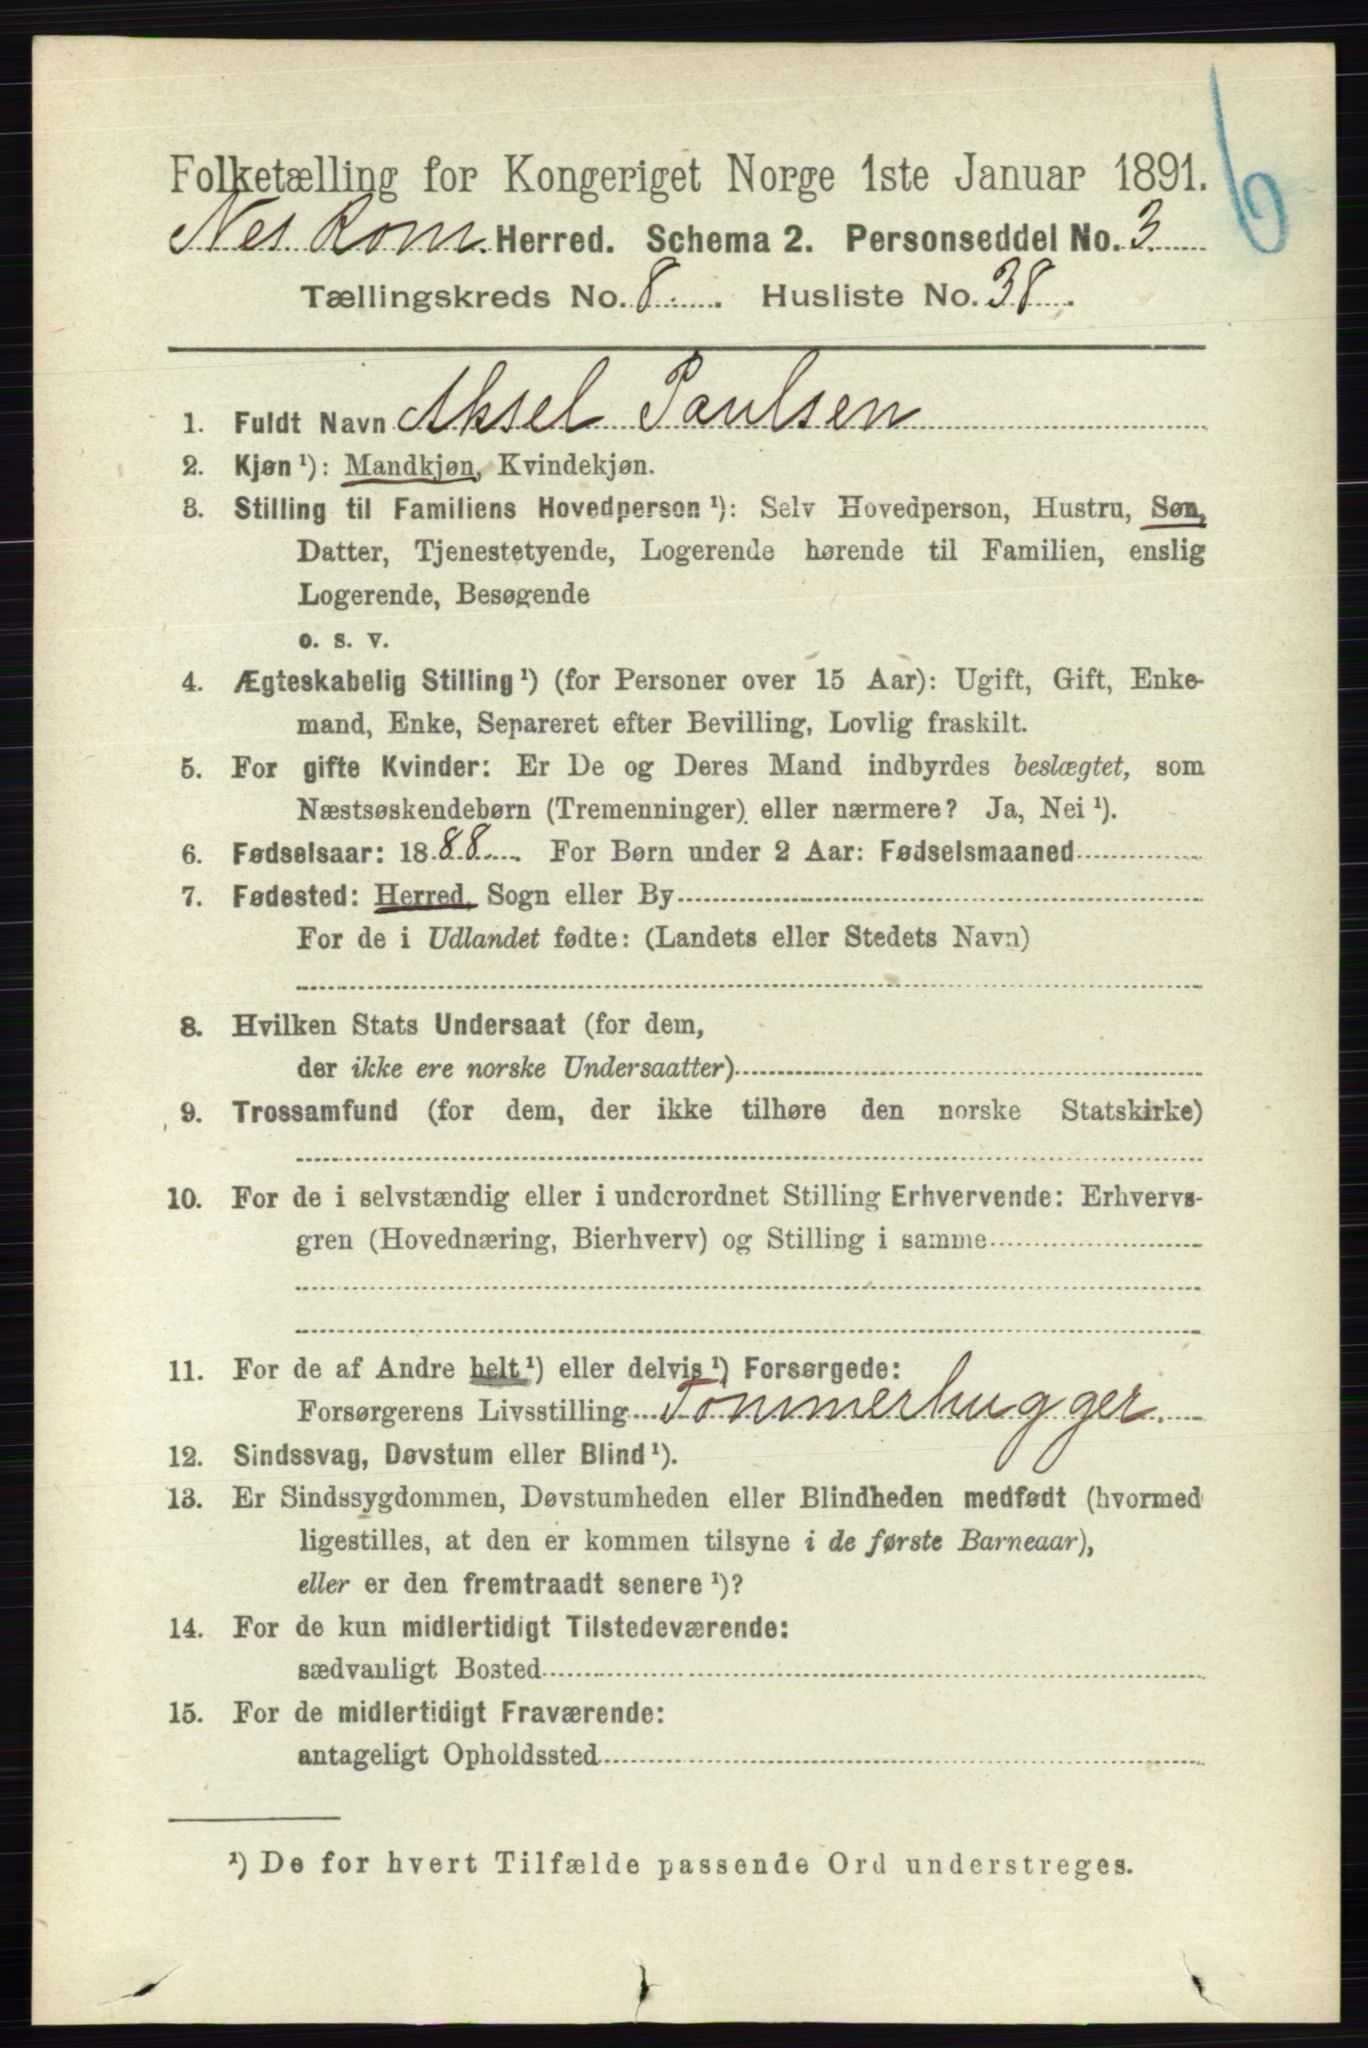 6
Folketælling for Kongeriget Norge 1ste Januar 1891.
Nes Rom. Herred. Schema 2. Personseddel No. 3
Tællingskreds No. 8. Husliste No. 38.
1. Fuldt Navn Aksel Paulsen
2. Kjøn ¹): Mandkjøn, Kvindekjøn.
3. Stilling til Familiens Hovedperson ¹): Selv Hovedperson, Hustru, Søn,
Datter, Tjenestetyende, Logerende hørende til Familien, enslig
Logerende, Besøgende
o. s. v.
4. Ægteskabelig Stilling ¹) (for Personer over 15 Aar): Ugift, Gift, Enke-
mand, Enke, Separeret efter Bevilling, Lovlig fraskilt.
5. For gifte Kvinder: Er De og Deres Mand indbyrdes beslægtet, som
Næstsøskendebørn (Tremenninger) eller nærmere? Ja, Nei ¹).
6. Fødselsaar: 1888. For Børn under 2 Aar: Fødselsmaaned
7. Fødested: Herred, Sogn eller By
For de i Udlandet fødte: (Landets eller Stedets Navn)
8. Hvilken Stats Undersaat (for dem,
der ikke ere norske Undersaatter)
9. Trossamfund (for dem, der ikke tilhøre den norske Statskirke)
10. For de i selvstændig eller i underordnet Stilling Erhvervende: Erhvervs-
gren (Hovednæring, Bierhverv) og Stilling i samme
11. For de af Andre helt ¹) eller delvis ¹) Forsørgede:
Forsørgerens Livsstilling Tømmerhugger.
12. Sindssvag, Døvstum eller Blind ¹).
13. Er Sindssygdommen, Døvstumheden eller Blindheden medfødt (hvormed
ligestilles, at den er kommen tilsyne i de første Barneaar),
eller er den fremtraadt senere ¹)?
14. For de kun midlertidigt Tilstedeværende:
sædvanligt Bosted
15. For de midlertidigt Fraværende:
antageligt Opholdssted
¹) De for hvert Tilfælde passende Ord understreges.